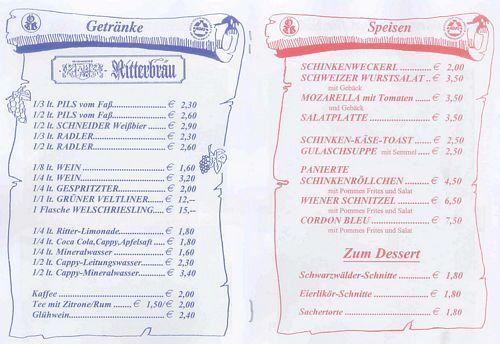 Getränke
Ritterbräu
1/3 lt. PILS vom Faß................€ 2,30
1/2 lt. PILS vom Faß................€ 2,60
1/2 lt. SCHNEIDER Weißbier...€ 2,90
1/3 lt. RADLER.......................€ 2,30
1/2 lt. RADLER.......................€ 2,60
1/8 lt. WEIN...........................€ 1,60
1/4 lt. WEIN...........................€ 3,20
1/4 lt. GESPRITZTER..............€ 2,00
1/1 lt. GRÜNER VELTLINER...€ 12,--
1 Flasche WELSCHRIESLING....€ 15,--
1/4 lt. Ritter-Limonade..............€ 1,80
1/4 lt. Coca Cola,Cappy,Apfelsaft....€ 1,80
1/4 lt. Mineralwasser ................€ 1,60
1/2 lt. Cappy-Leitungswasser.......€ 2,30
1/2 lt. Cappy-Mineralwasser.......€ 3,40
Kaffee ....................................€ 2,00
Tee mit Zitrone/Rum ......€ 1,50/€ 2,00
Glühwein................................€ 2,40
Speisen
SCHINKENWECKERL ..........€ 2,00
SCHWEIZER WURSTSALAT ..€ 3,50
mit Gebäck
MOZARELLA mit Tomaten ....€ 3,50
und Gebäck
SALATPLATTE .....................€ 3,50
SCHINKEN-KÄSE-TOAST ....€ 2,50
GULASCHSUPPE mit Semmel ....€ 2,50
PANIERTE
SCHINKENRÖLLCHEN ........€ 4,50
mit Pommes Frites und Salat
WIENER SCHNITZEL ...........€ 6,50
mit Pommes Frites und Salat
CORDON BLEU ...................€ 7,50
mit Pommes Frites und Salat
Zum Dessert
Schwarzwälder-Schnitte ...........€ 1,80
Eierlikör-Schnitte ....................€ 1,80
Sachertorte .............................€ 1,80